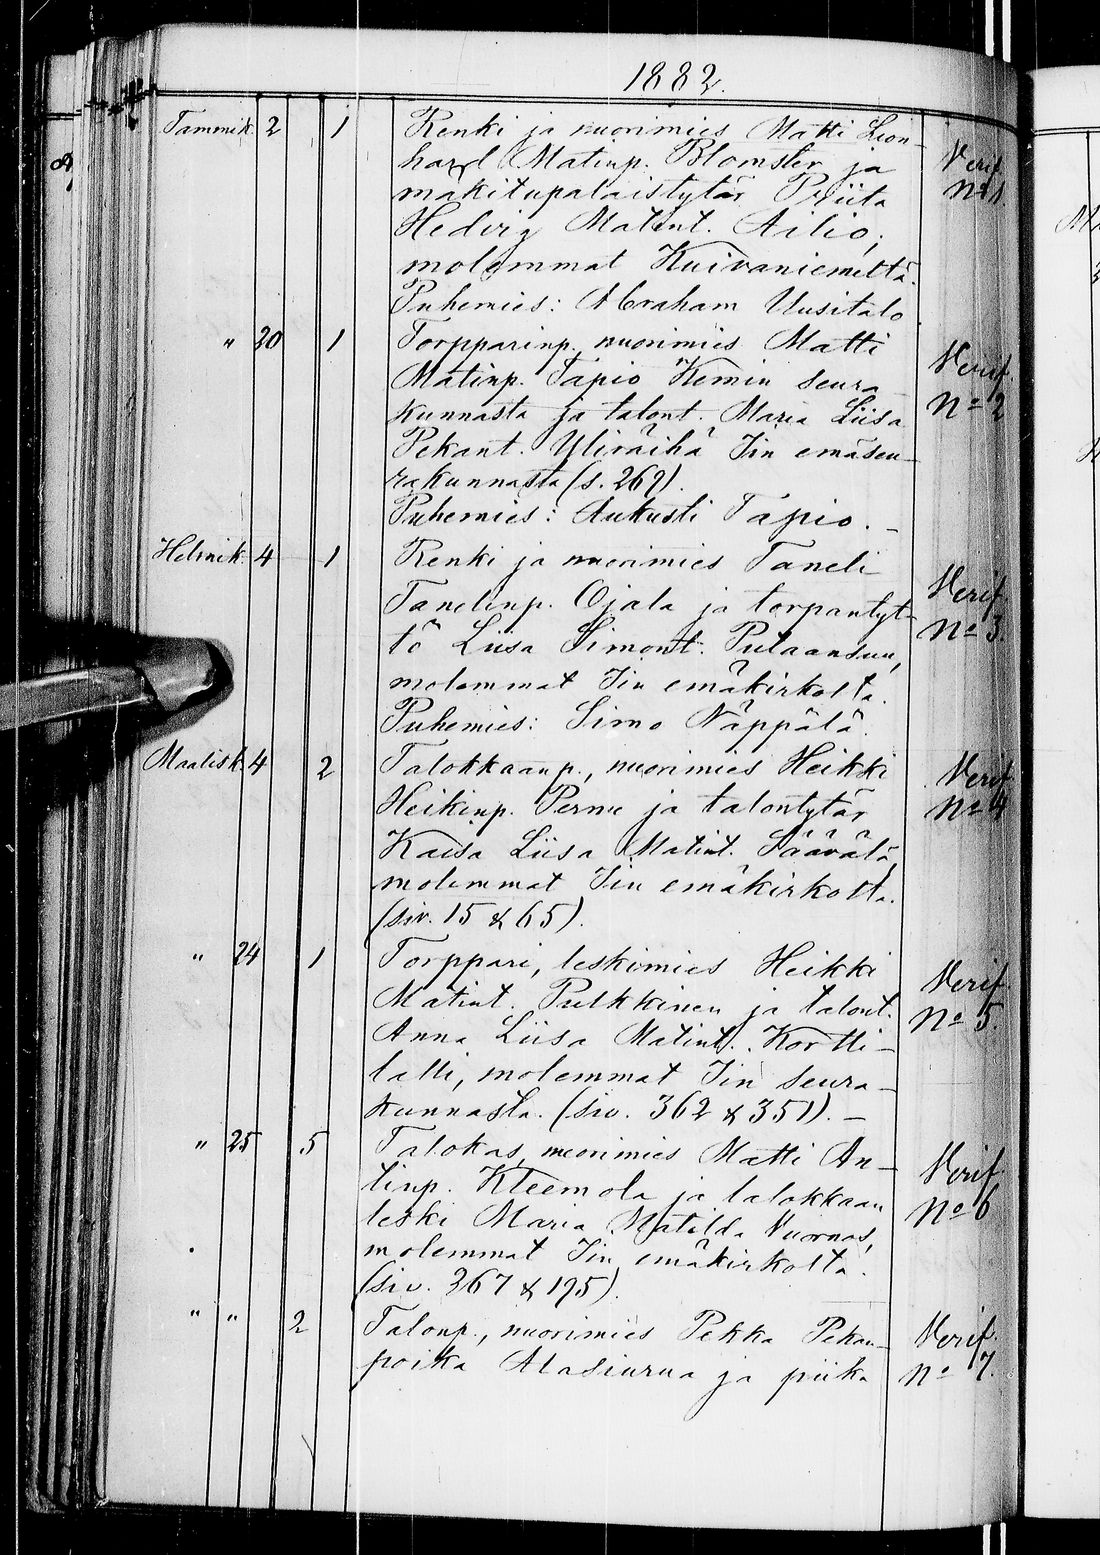 1882.
Tammik. 2 1 Renki ja nuorimies Matti Leon-
hard Matinp. Blomster ja Verif.
mäkitupalaistytär Priita No 1
Hedvig Matint. Ailio,
molemmat Kuivaniemeltä.
Puhemies: Abraham Uusitalo
" 30 1 Torpparinp. nuorimies Matti
Matinp. Tapio Kemin seura Verif.
kunnasta ja talont. Maria Liisa No 2
Pekant. Yliräihä Iin emäseu-
rakunnasta (s. 269).
Puhemies: Aukusti Tapio. -
Helmik. 4 1 Renki ja nuorimies Taneli
Tanelinp. Ojala ja torpantyt- Verif.
tö Liisa Simont. Putaansuu, No 3.
molemmat Iin emäkirkolta.
Puhemies: Simo Näppälä.
Maalisk. 4 2 Talokkaanp., nuorimies Heikki Verif.
Heikinp. Perme ja talontytär No 4
Kaisa Liisa Matint. Säävälä,
molemmat Iin emäkirkolta.
(siv. 15 & 65).
" 24 1 Torppari, leskimies Heikki Verif.
Matint. Pulkkinen ja talont. No 5.
Anna Liisa Matint. Kortti-
latti, molemmat Iin seura-
kunnasta. (siv. 362 & 351). -
" 25 5 Talokas, nuorimies Matti An-
tinp. Kleemola ja talokkaan Verif.
leski Maria Matilda Vuornos, No 6
molemmat Iin emäkirkolta.
(siv. 367 & 195).
" " 2 Talonp., nuorimies Pekka Pekan- Verif.
poika Alasiurua ja piika No 7.